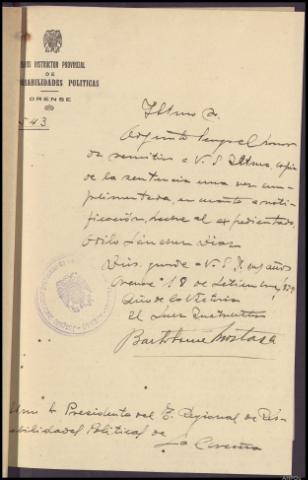 INSTRUCTOR PROVINCIAL
DE
POLITICAS
ORENSE
543
Iltmo Sr.
Adjunto tengo el honor
de remitir a V. S. Iltma, copia
de la sentencia una vez cum-
plimentada, en cuanto a noti-
ficación, hecha al expedientado
Odilo Sánchez Díaz
Dios guarde a V. S. I. m, años
Orense 18 de Setiembre, 1939
Año de la Victoria
El Juez Instructor
Bartolomé Mostaza
Presidente del T. Regional de Res-
abilidades Politicas de
La Coruña